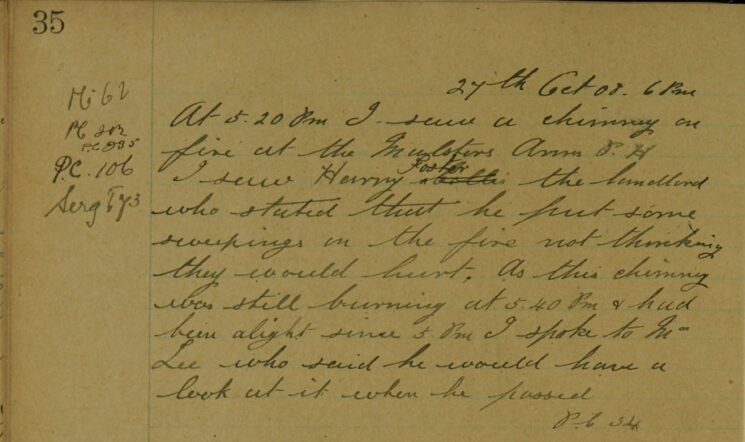 35
27th Oct 08. 6 Pm
PC 202
P.C 235
P.C. 106
Serg T 73
At 5.20 Pm I saw a chimney on
fire at the Malsters Arms P. H
I saw Harry Foster the landlord
who stated that he put some
sweepings on the fire not thinking
they would hurt. As this chimney
was still burning at 5.40 Pm & had
been alight since 5 Pm I spoke to Mr
Lee who said he would have a
look at it when he passed
P.C 34